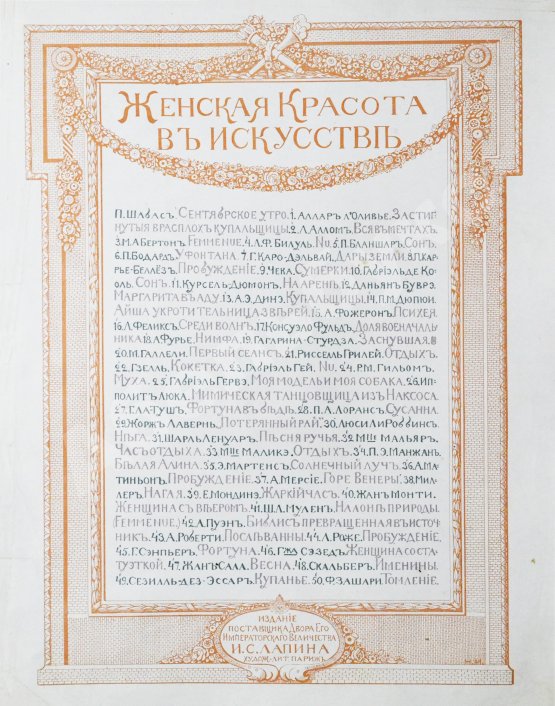 Женская Красота
въ искусствѣ
П. Шабасъ. Сентябрское утро. 1. Алларъ л'Оливье. Застиг-
нутыя врасплохъ купальщицы. 2. Л. Алломъ. Вся въ мечтахъ.
3. М. Абертонъ. Femme nue. 4. Л. Ф. Билуль. Nu. 5. П. Бланшаръ. Сонъ.
6. П. Бодардъ. У фонтана. 7. Г. Каро-Дэльвай. Дары земли. 8. П. Кар-
рье-Беллёзъ. Пробужденіе. 9. Чека. Сумерки. 10. Габріэль де Ко-
оль. Сонъ. 11. Курсель-Дюмонъ. На аренѣ. 12. Даньянъ Буврэ.
Маргарита въ аду. 13. А. Э. Динэ. Купальщицы. 14. П. М. Дюпюи.
Айша укротительница звѣрей. 15. А. Фожеронъ. Психея.
16. Л. Феликсъ. Среди волнъ. 17. Консуэло Фульдъ. Доля военачаль-
ника 18. А. Фурье. Нимфа. 19. Гагарина-Стурдза. Заснувшая.
20. М. Галлели. Первый сеансъ. 21. Риссель Грилей. Отдыхъ.
22. Гзелль. Кокетка. 23. Габріэль Гей. Nu. 24. Р. М. Гильомъ.
Муха. 25. Габріэль Гервэ. Моя модель и моя собака. 26. Ип-
политъ Люка. Мимическая танцовщица изъ Наксоса.
27. Г. Ла-Тушъ. Фортуна въ бѣдѣ. 28. П. А. Лорансъ. Сусанна.
29. Жоржъ Лавернь. Потерянный рай. 30. Люси Ли Роббинсъ.
Нѣга. 31. Шарль Ленуаръ. Пѣсня ручья. 32 Mlle Мальяръ.
Часъ отдыха. 33 Mlle Маликэ. Отдыхъ. 34. П. Э. Манжанъ.
Бѣлая Алина. 35. Э. Мартенсъ. Солнечный лучъ. 36. А. Ма-
тиньонъ. Пробужденіе. 37. А. Мерсіе. Горе Венеры. 38. Мил-
леръ. Нагая. 39. Е. Мондинэ. Жаркій часъ. 40. Жанъ Монти.
Женщина съ вѣеромъ. 41. Ш. Л. Муленъ. На лонѣ природы.
(Femme nue.) 42. А. Пуэнъ. Библисъ превращенная въ источ-
никъ. 43. А. Роберти. Послѣ ванны. 44. Л. Роже. Пробужденіе.
45. Г. Сэнпьеръ. Фортуна. 46. Г-жа Сэзедъ. Женщина со ста-
туэткой. 47. Жанъ Сала. Весна. 48. Скальберъ. Именины.
49. Сезилль-дез-Эссаръ. Купанье. 50. Ф. Зашари. Томленіе.
изданіе
поставщика Двора Его
Императорскаго Величества
И. С. Лапина
худож.-лит. Парижъ